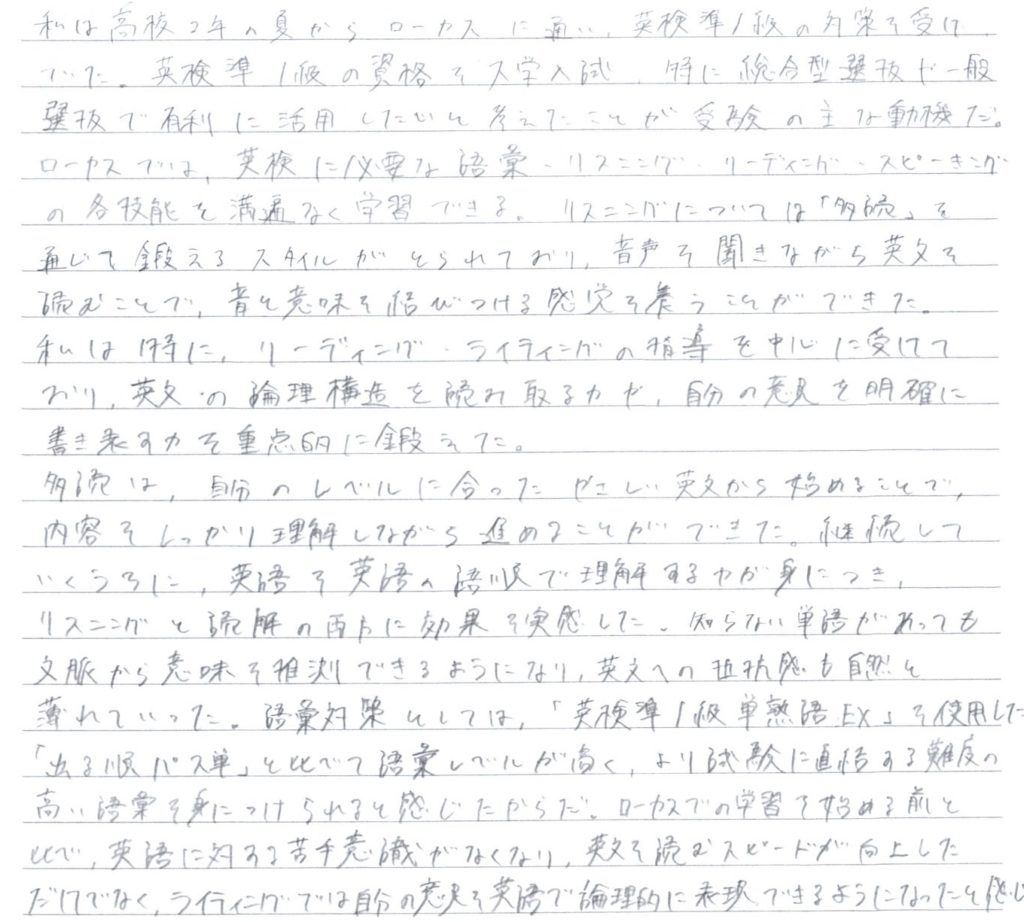 私は高校2年の夏からローカスに通い、英検準1級の対策を受け
ていた。英検準1級の資格を大学入試、特に総合型選抜や一般
選抜で有利に活用したいと考えたことが受験の主な動機だ。
ローカスでは、英検に必要な語彙・リスニング・リーディング・スピーキング
の各技能を満遍なく学習できる。リスニングについては「多読」を
通じて鍛えるスタイルがとられており、音声を聞きながら英文を
読むことで、音と意味を結びつける感覚を養うことができた。
私は特に、リーディング・ライティングの指導を中心に受けて
おり、英文の論理構造を読み取る力や、自分の意見を明確に
書き表す力を重点的に鍛えた。
多読は、自分のレベルに合ったやさしい英文から始めることで、
内容をしっかり理解しながら進めることができた。継続して
いくうちに、英語を英語の語順で理解する力が身につき、
リスニングと読解の両方に効果を実感した。知らない単語があっても
文脈から意味を推測できるようになり、英文への抵抗感も自然と
薄れていった。語彙対策としては、「英検準1級単熟語EX」を使用した
「出る順パス単」と比べて語彙レベルが高く、より試験に直結する難度の
高い語彙を身につけられると感じたからだ。ローカスでの学習を始める前と
比べ、英語に対する苦手意識がなくなり、英文を読むスピードが向上した
だけでなく、ライティングでは自分の意見を英語で論理的に表現できるようになったと感じ